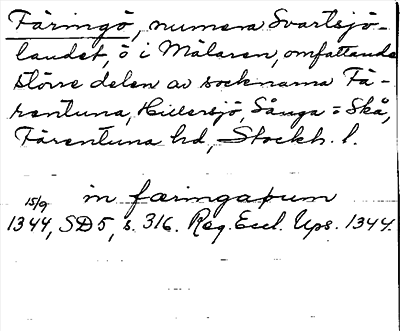 Färingö, numera Svartsjö-
landet, ö i Mälaren, omfattande
större delen av socknarna Fä-
rentuna, Hilersjö, Sånga = Skå,
Färentuna hd, Stockh. l.
in færingaþum
15/9
1344, SD 5, s. 316. Reg. Eccl. Ups. 1344.